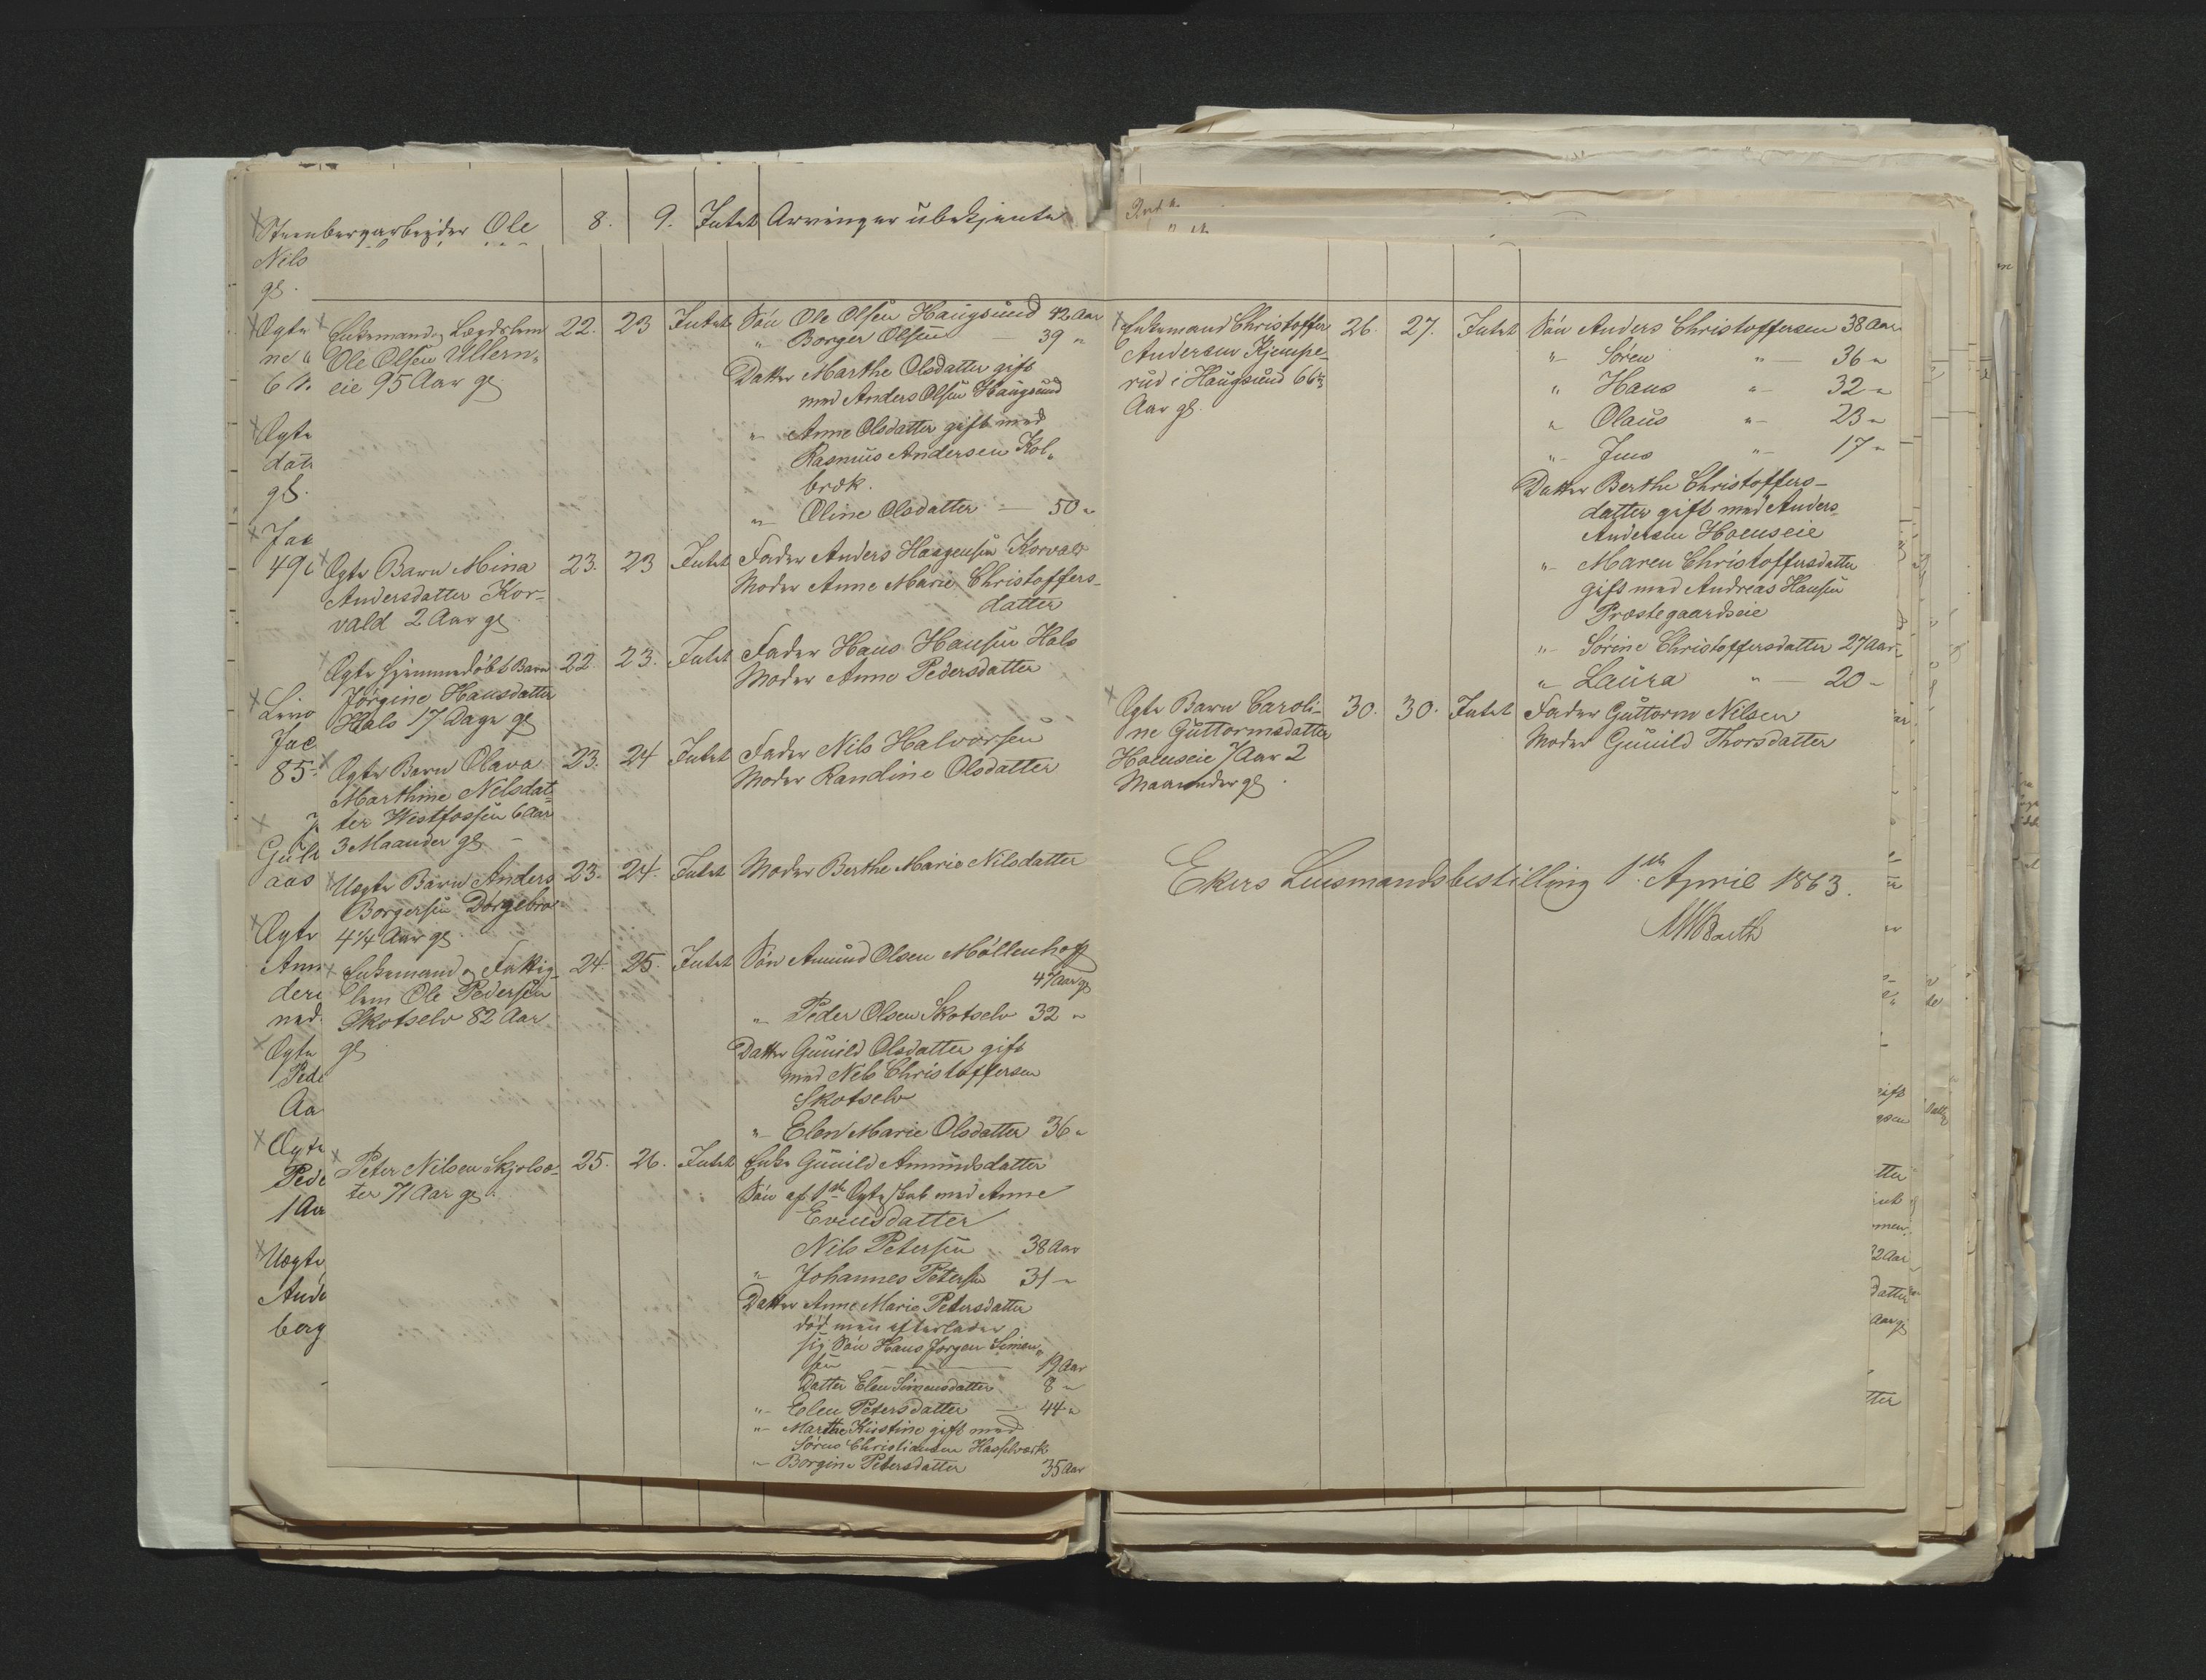 Steenbergarbeider Ole 8. 9. Intet Arvinger übekjente
Nils
gl.
Ægte
ne
Ægte
dat
gl.
Jac
49
Jac
85
Gul
aas
Ægte
Ann
Ægte
Pede
Aa
Ægte
Pede
1 Aa
Uægte
Ande
berg
Enkemand, Lægdslem 22. 23 Intet Søn Ole Olsen Haugsund 42 Aar
Ole Olsen Ullern- " Borger Olsen — 39 "
eie 95 Aar gl Datter Marthe Olsdatter gift
med Anders Olsen Haugsund
" Anne Olsdatter gift med
Rasmus Andersen Kol-
bræk.
" Oline Olsdatter — 50 "
Ægte Barn Mina 23. 23 Intet Fader Anders Haagensen Korvald
Andersdatter Kor- Moder Anne Marie Christoffers-
vald 2 Aar gl. datter
Ægte hjemmedøbt Barn 22. 23. Intet Fader Hans Hansen Hals
Jørgine Hansdatter Moder Anne Pedersdatter
Hals 17 Dage gl
Ægte Barn Olava 23. 24 Intet Fader Nils Halvorsen
Marthine Nilsdat- Moder Randine Olsdatter
ter Westfossen 6 Aar
3 Maaneder gl —
Uægte Barn Anders 23. 24. Intet Moder Berthe Marie Nilsdatter
Borgersen Dørgebro
4 1/4 Aar gl.
Enkemand, Fattig- 24. 25. Intet Søn Amund Olsen Møllenhof
lem Ole Pedersen 47 Aar gl
Skotselv 82 Aar " Peder Olsen Skotselv 32 "
gl Datter Gunild Olsdatter gift
med Nils Christoffersen
Skotselv
" Elen Marie Olsdatter 36 "
Peter Nilsen Skjelsæ- 25. 26. Intet Enke Gunild Amundsdatter
ter 71 Aar gl. Søn af 1ste Ægteskab med Anne
Evensdatter
Nils Petersen 38 Aar
" Johannes Petersen 31 "
Datter Anne Marie Petersdatter
død men efterlader
sig Søn Hans Jørgen Simen-
sen — 19 Aar
Datter Elen Simensdatter 8 "
" Elen Petersdatter — 44 "
" Marthe Kirstine gift med
Søren Christiansen Hasselværk
" Borgine Petersdatter 35 Aar
Enkemand Christoffer 26. 27. Intet Søn Anders Christoffersen 38 Aar
Andersen Kjempe- " Søren " — 36 "
rud i Haugsund 66 1/2 " Hans " 32 "
Aar gl. " Olaus " 23 "
" Jens " 17 "
Datter Berthe Christoffers-
datter gift med Anders
Andersen Hoenseie
" Maren Christoffersdatter
gift med Andreas Hansen
Præstegaardseie
" Sørine Christoffersdatter 27 Aar
" Laura " — 20 "
Ægte Barn Caroli- 30. 30. Intet Fader Guttorm Nilsen
ne Guttormsdatter Moder Gunild Thorsdatter
Hoenseie 7 Aar 2
Maaneder gl.
Ekers Lensmandsbestilling 1ste April 1863.